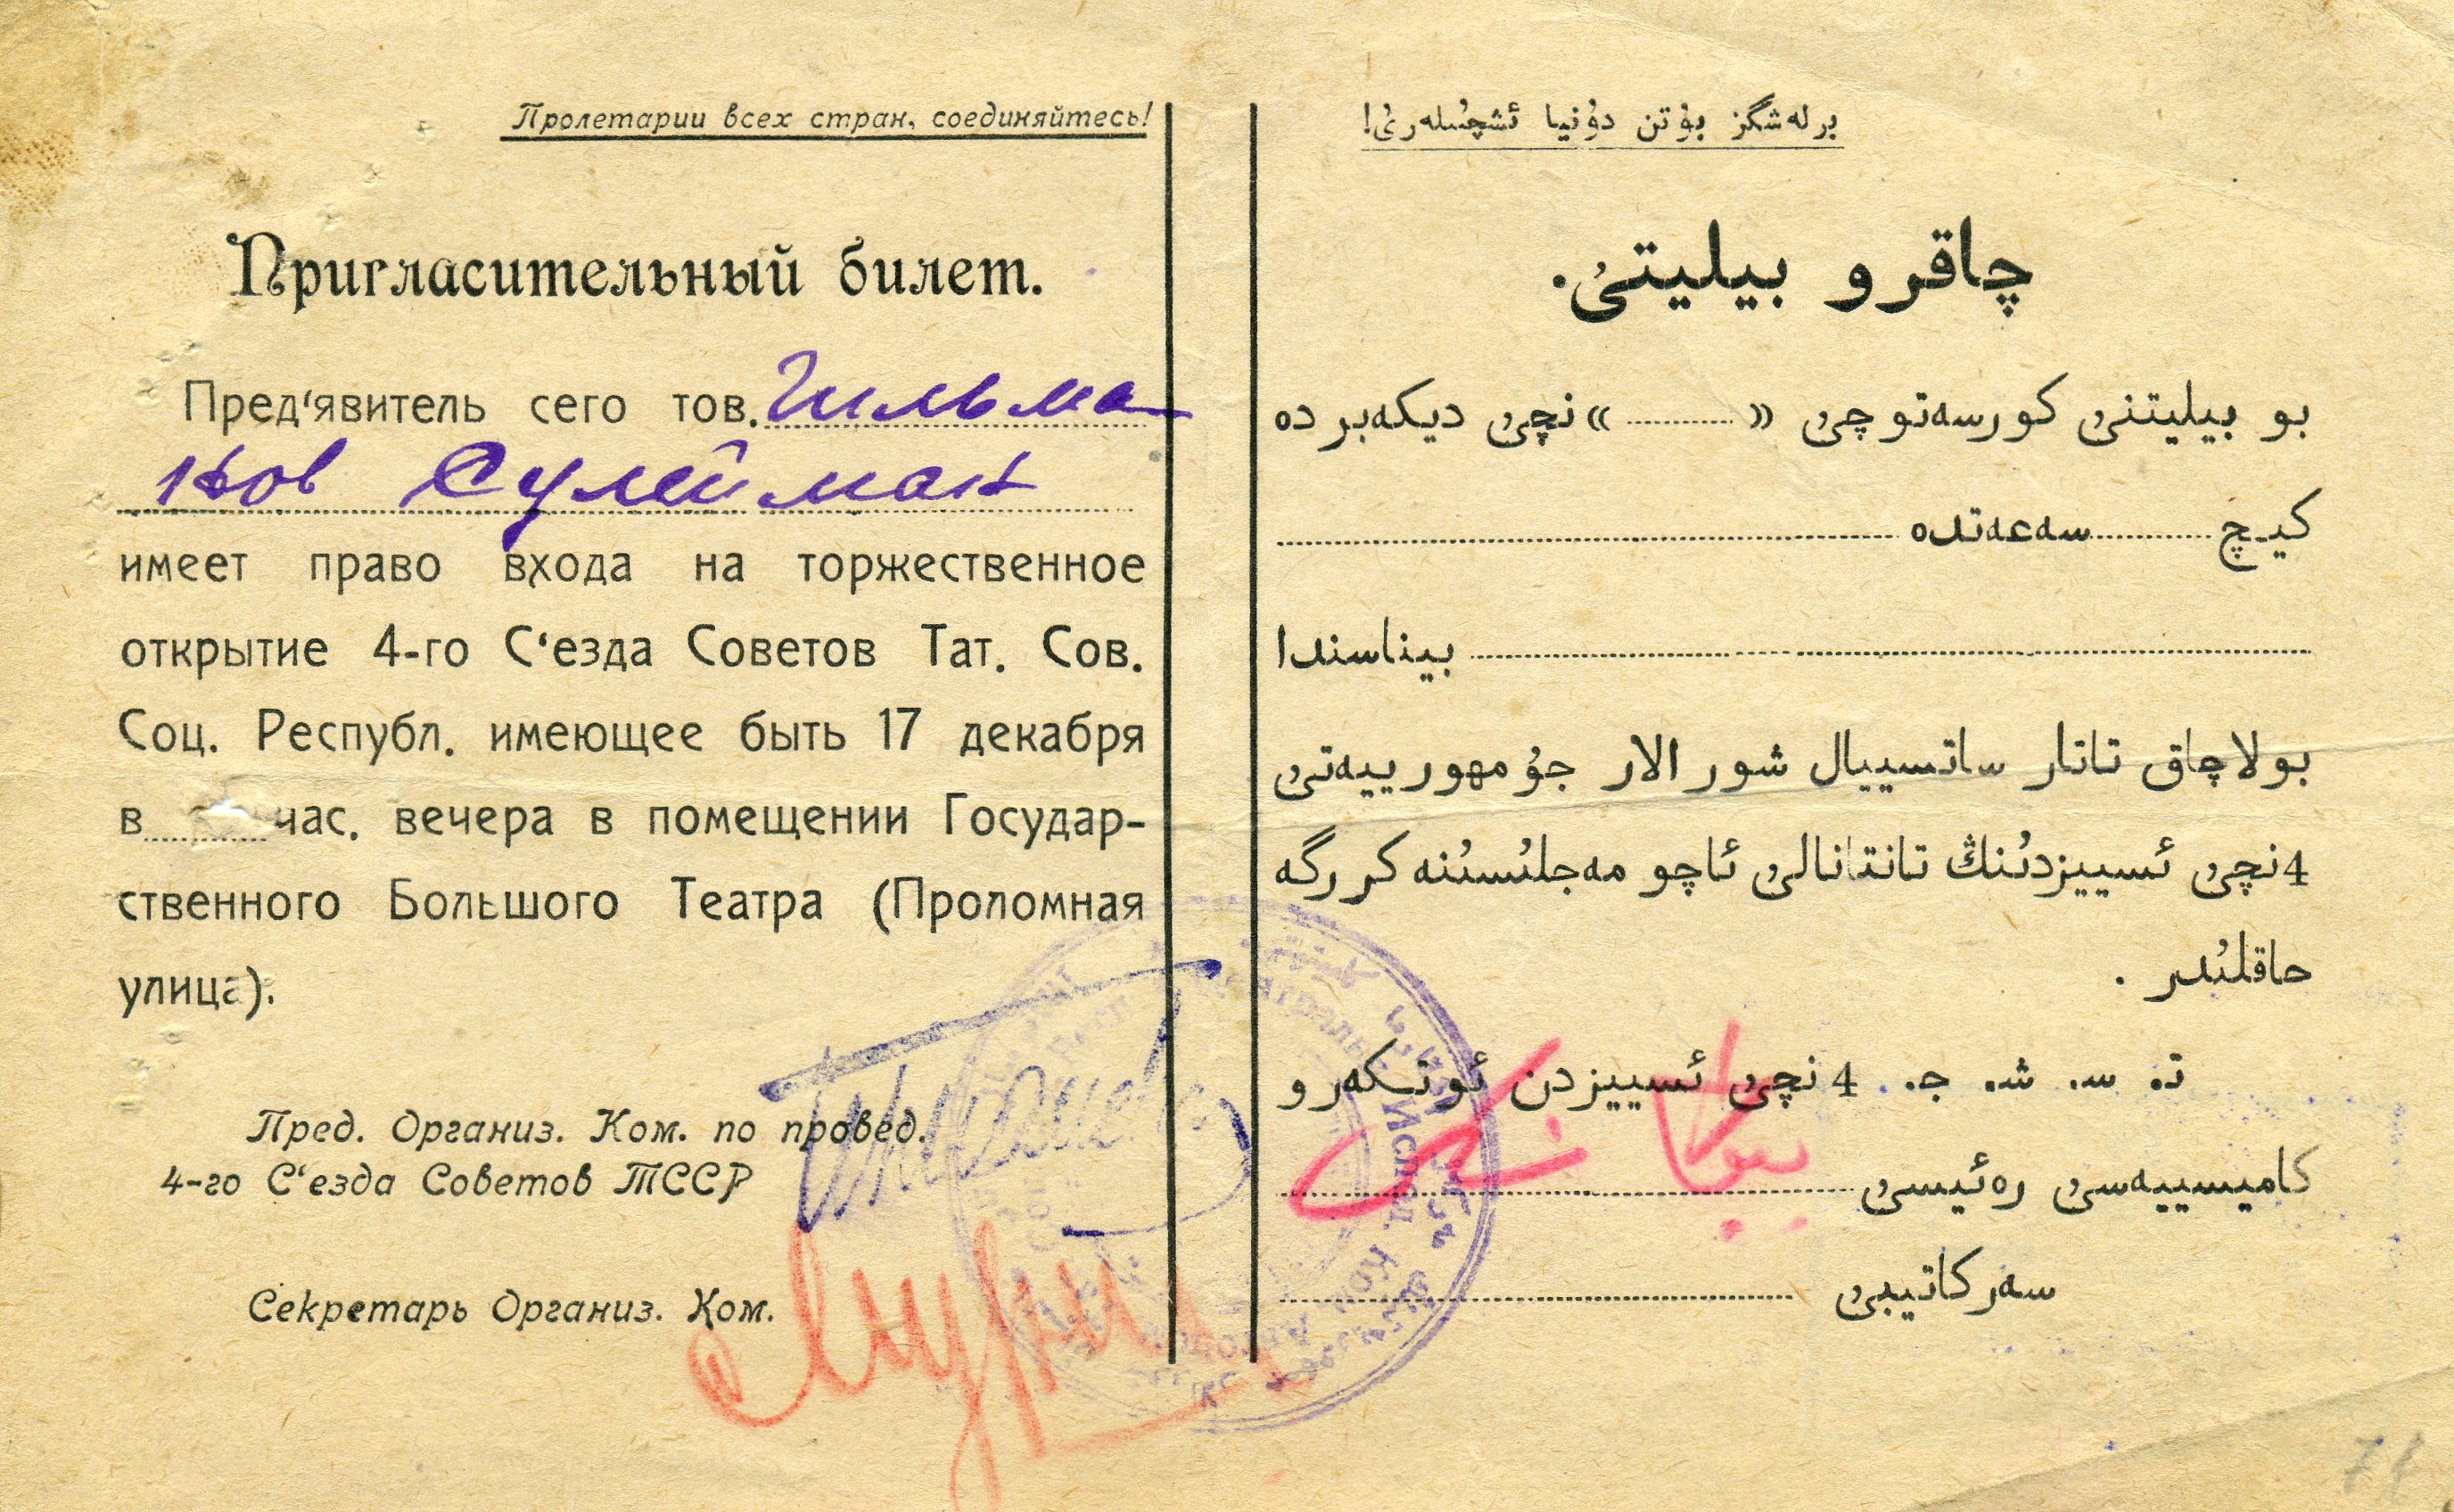 Пролетарии всех стран, соединяйтесь!
Пригласительный билет.
Пред'явитель сего тов. Гильма-
нов Сулейман
имеет право входа на торжественное
открытие 4-го С'езда Советов Тат. Сов.
Соц. Республ. имеющее быть 17 декабря
в час. вечера в помещении Государ-
ственного Большого Театра (Проломная
улица).
Пред. Организ. Ком. по провед.
4-го С'езда Советов ТССР
Секретарь Организ. Ком.
برلەشگز بۇتن دۇنيا ئشچىلەرئ!
چاقرو بيليتئ.
بو بيليتنئ كورسەتوچئ « » نچئ ديكەبردە
كيـچ سەعەتدە
بيناسندا
بولاچاق تاتار ساتسييال شورالار جۇمهورييەتئ
4 نچئ ئسييزدئنڭ تانتانالئ ئاچو مەجلئسئنە كررگە
حاقلئدر .
تـ. سـ. شـ. جـ. 4 نچئ ئسييزدن ئوتكەرو
كاميسييەسئ رەئيسئ
سەركاتيبئ
Испол. Ком
71